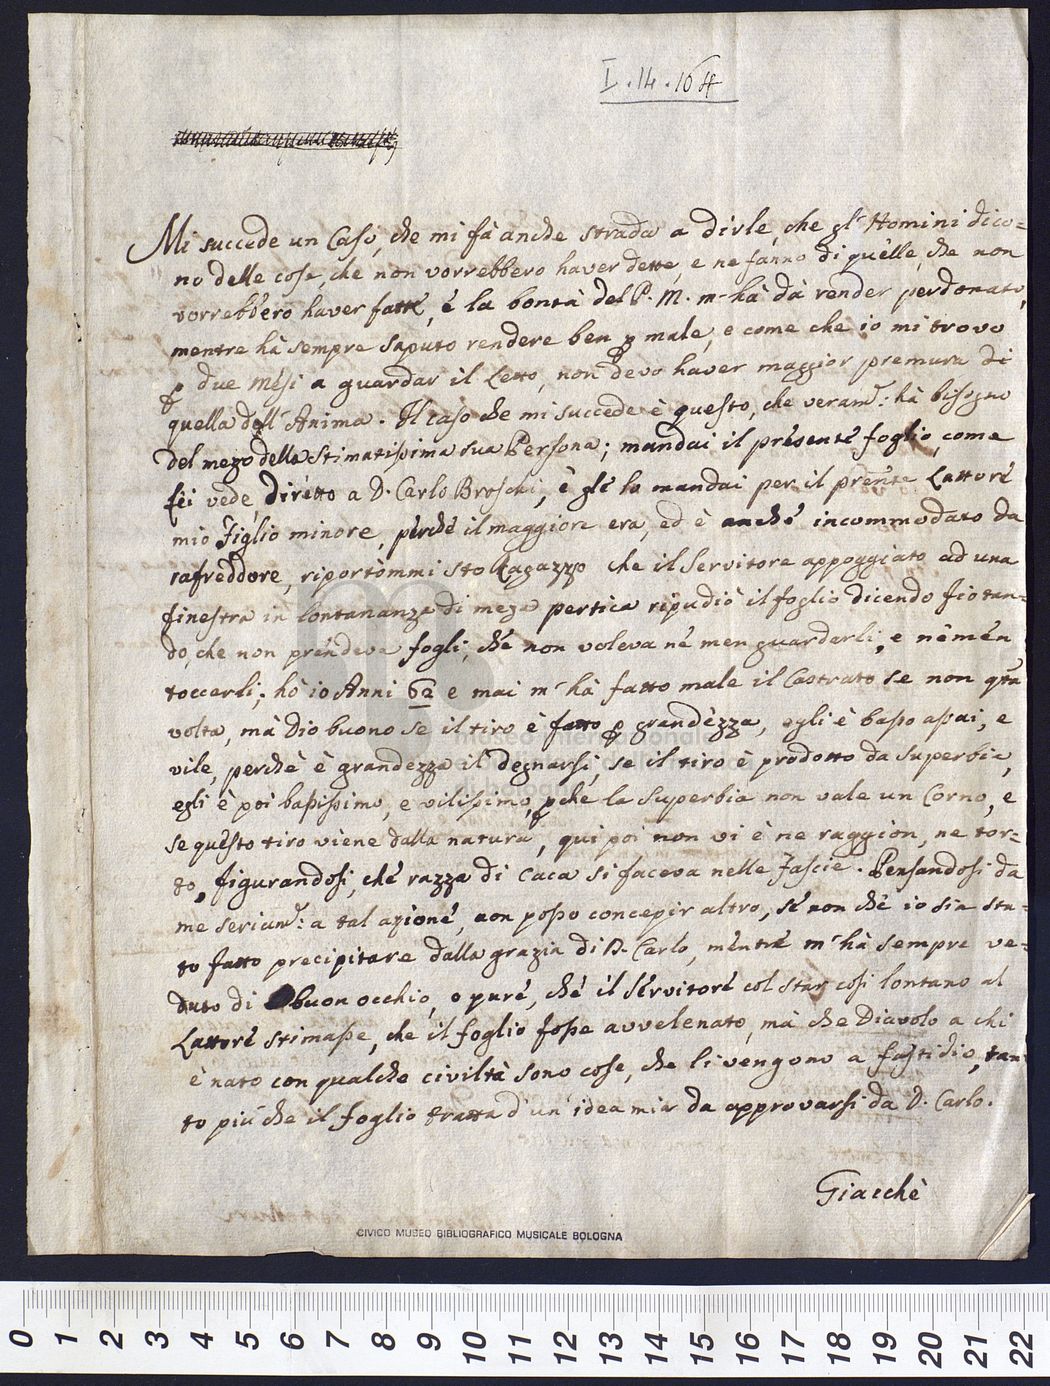 I.14.164
Mi succede un Caso, che mi fà anche strada a dirle, che gl' Homini dico=
no delle cose, che non vorrebbero haver dette, e ne fanno di quelle, che non
vorrebbero haver fatte, è la bontà del P. M. m'hà dà render perdonato,
mentre hà sempre saputo rendere ben p male, e come che io mi trovo
p due Mesi a guardar il Letto, non devo haver maggior premura di
quella dell'Anima. Il caso che mi succede è questo, che veram.: hà bisogno
del mezo della Stimatissima sua Persona; mandai il presente foglio, come
lei vede, diretto a D. Carlo Broschi, è glé lo mandai per il prente Lattore
mio Figlio minore, perchè il maggiore era, ed è anche incommodato da
rafreddore, riportòmmi sto Ragazzo che il Servitore appoggiato ad una
finestra in lontananza di meza pertica ripudiò il foglio dicendo fiotan=
do, che non prendeva fogli, ché non voleva né men guardarli, e némén
toccarli; hò io Anni 62 e mai m'hà fatto male il Castrato se non qta
volta, mà Dio buono se il tiro è fatto p grandezza, egli è basso assai, e
vile, perchè è grandezza il degnarsi, se il tiro è prodotto da Superbia,
egli è poi bassissimo, e vilissimo, pche la Superbia non vale un Corno, e
se questo tiro viene dalla natura, qui poi non vi è ne raggion, ne tor=
to, figurandosi, ché razza di Caca si faceva nelle Fascie. Pensandosi da
me seriam.: a tal azione, non posso concepir altro, sé non ché io sia sta=
to fatto precipitare dalla grazia di D. Carlo, mentre m'hà sempre ve=
duto di buon occhio, o pure, ché il Servitoré col star così lontano al
Lattoré stimasse, che il foglio fosse avvelenato, mà che Diavolo a chi
è nato con qualche civiltà sono cose, che li vengono a fastidio, tan
to più che il foglio tratta d'un'idea mia da approvarsi da D. Carlo.
Giacchè
CIVICO MUSEO BIBLIOGRAFICO MUSICALE BOLOGNA
museo internazionale
di bologna
0 1 2 3 4 5 6 7 8 9 10 11 12 13 14 15 16 17 18 19 20 21 22